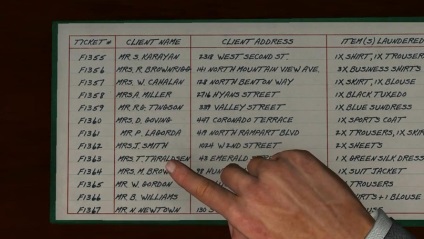 TICKET# CLIENT NAME CLIENT ADDRESS ITEM(S) LAUNDERED
F1355 MR S. KARAYAN 2318 WEST SECOND ST. 1X SHIRT, 1X TROUSER
F1356 MRS. R. BROWNRIGG 141 NORTH MOUNTAIN VIEW AVE. 3X BUSINESS SHIRTS
F1357 MRS. W. CAHALAN 128 NORTH BENTON WAY 1X SKIRT, 1X BLOUSE
F1358 MRS A. MILLER 2716 HYANS STREET 1X BLACK TUXEDO
F1359 MR. R.G. TINGSON 339 VALLEY STREET 1X BLUE SUNDRESS
F1360 MRS. D. GOVING 447 CORONADO TERRACE 1X SPORTS COAT
F1361 MR. P. LAGORDA 419 NORTH RAMPART BLVD 2X TROUSERS, 1X SKIR
F1362 MRS J. SMITH 1024 W 2ND STREET 2X SHEETS
F1363 MRS T. TARALDSEN 43 EMERALD 1X GREEN SILK DRESS
F1364 MRS. M. BROW 1X SUIT JACKET
F1365 MR W. GORDON TROUSERS
F1366 MR B. WILLIAMS + 1 BLOUSE
F1367 MR N. NEWTOWN